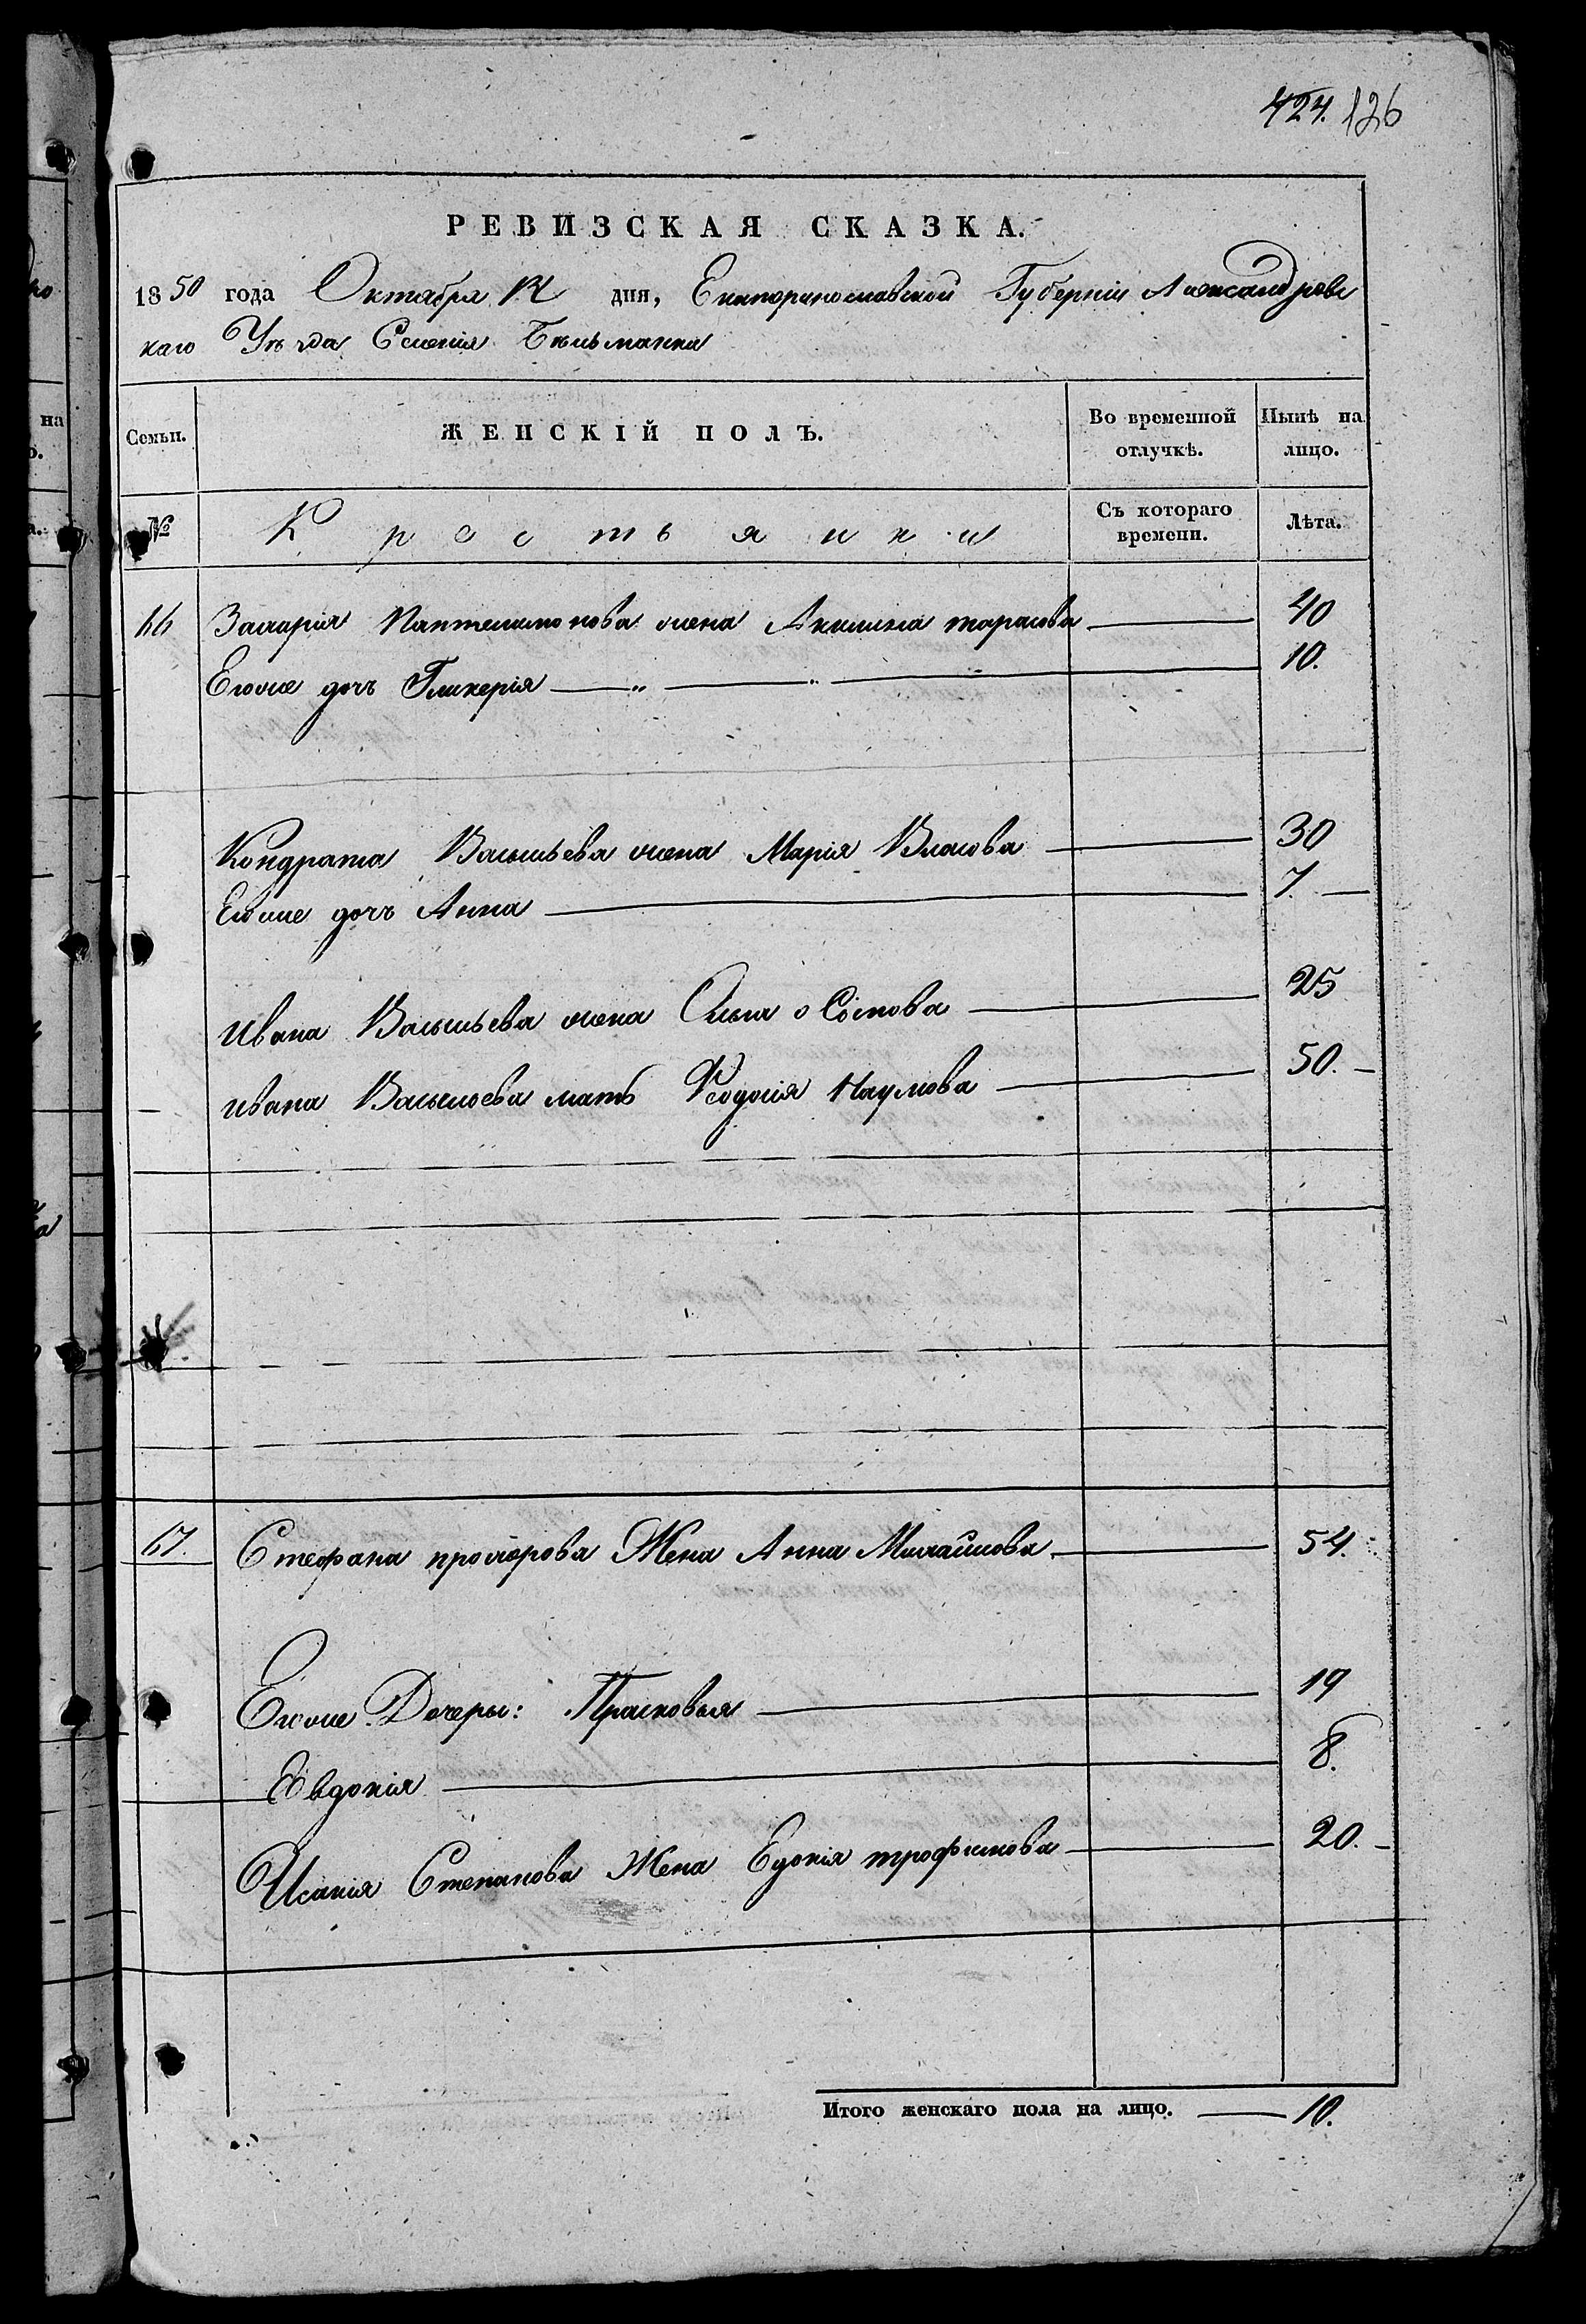 424. 126
РЕВИЗСКАЯ СКАЗКА.
1850 года Октября дня, Екатеринославской Губерніи Александровс
каго Уѣзда Селенія Бѣльманка
Семьи. ЖЕНСКІЙ ПОЛЪ. Во временной отлучкѣ. Нынѣ на лицо.
№ Крестьянки Съ котораго времени. Лѣта.
66 Захарія Пантелимонова жена Акилина тарасова 40
Егоже дочь Гликерія 10.
Кондрата Васильева жена Марія Власова 30
Егоже дочь Анна 7.
Ивана Васильева жена Ольга 25
Ивана Васильева мать Феодосія Наумова 50.
67. Стефана прохорова Жена Анна Михайлова 54.
Егоже Дочеры: Прасковья 19
Евдокія 8.
Исакія Степанова Жена Едокія трофимова 20.
Итого женскаго пола на лицо. 10.